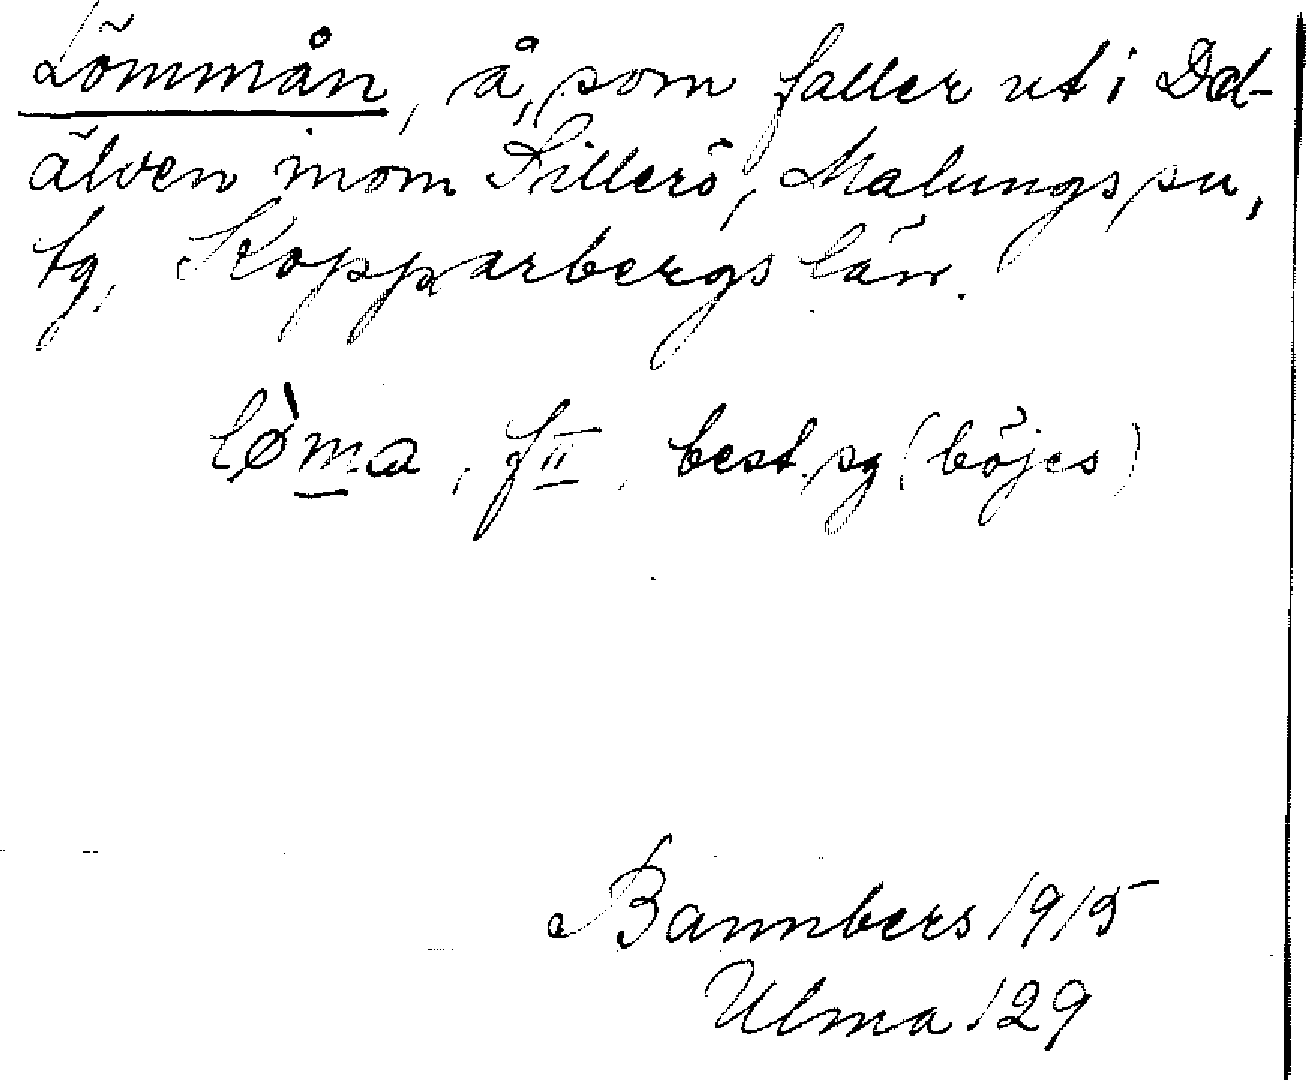 Lömmån, å, som faller ut i Dd-
älven inom Lillerö, Malungs sn,
tg, Kopparbergs län.
lø̀ma, f II, best. sg (böjes)
Bannbers 1915
Ulma 129